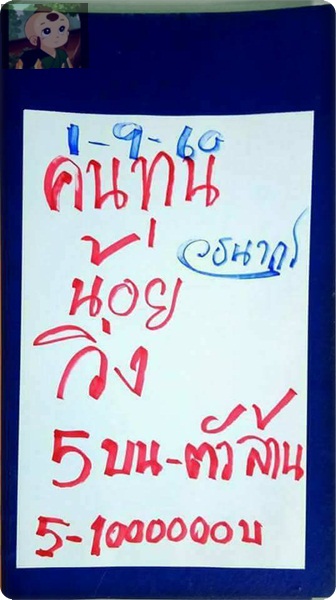 1-9-60
คนทุน
น้อย
วรนาถ
วิ่ง
5 บน-ตัวล้าน
5-1000000บ